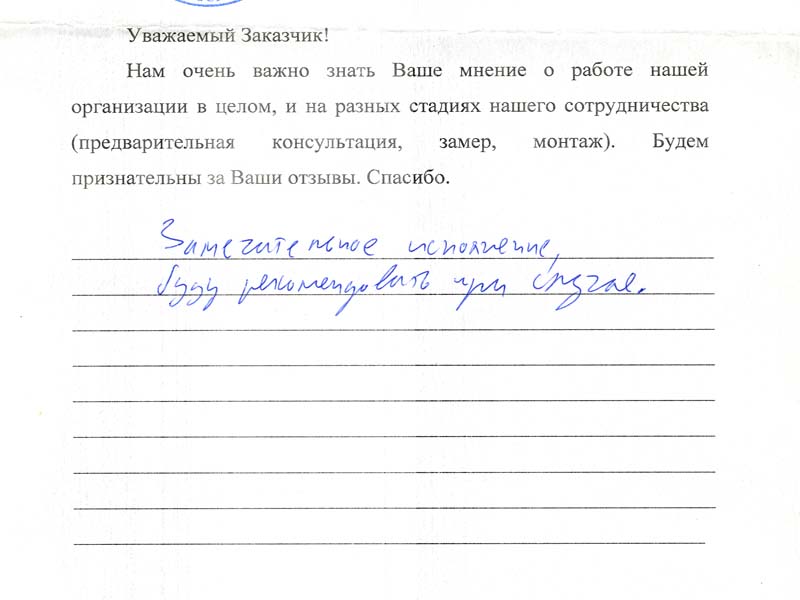 Уважаемый Заказчик!
Нам очень важно знать Ваше мнение о работе нашей
организации в целом, и на разных стадиях нашего сотрудничества
(предварительная консультация, замер, монтаж). Будем
признательны за Ваши отзывы. Спасибо.
Замечательное исполнение,
буду рекомендовать при случае.